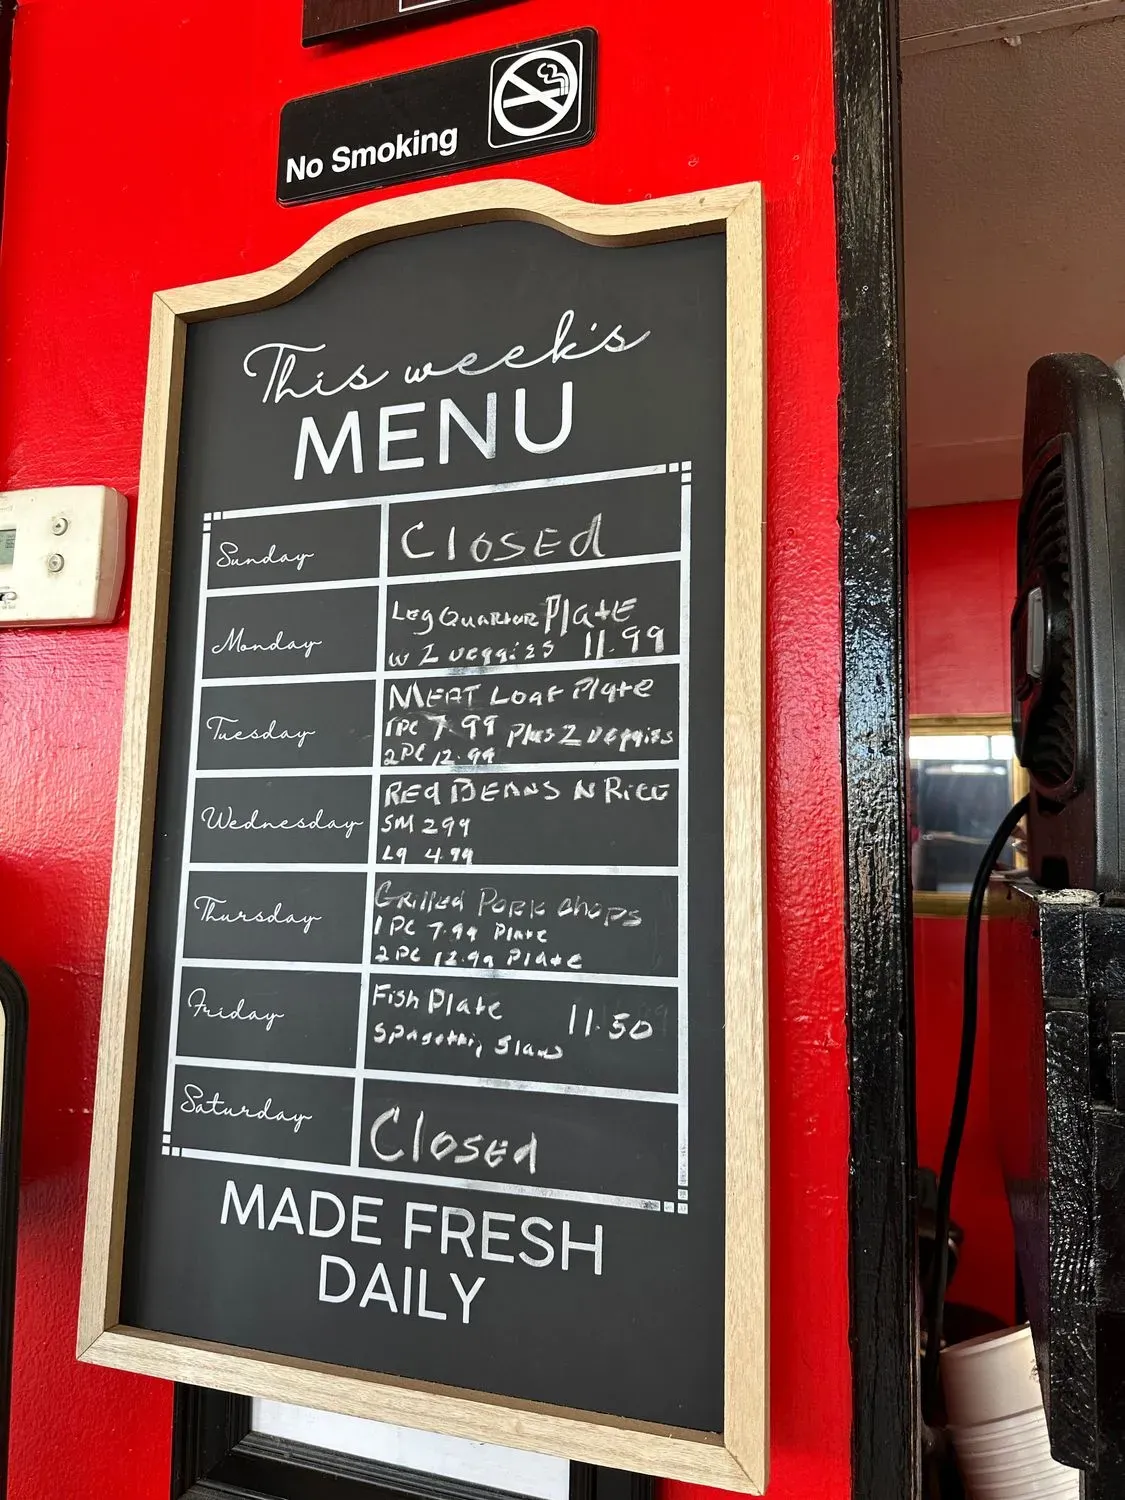 No Smoking
This week's
MENU
Sunday
CLOSEd
Monday
Leg Quarter Plate
w 2 veggies 11.99
Tuesday
MEAT LOAF Plate
1PC 7.99 Plus 2 veggies
2PC 12.99
Wednesday
REd BEANS N RICE
SM 299
Lg 4.99
Thursday
GRilled PORK CHOPS
1 PC 7.99 Plate
2 PC 12.99 Plate
Friday
Fish Plate 11.50
Slaw
Saturday
Closed
MADE FRESH
DAILY